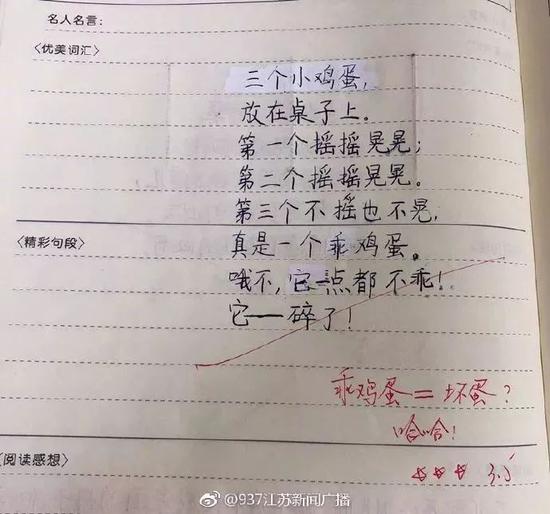 名人名言：
〈优美词汇〉
三个小鸡蛋，
放在桌子上。
第一个摇摇晃晃；
第二个摇摇晃晃。
第三个不摇也不晃，
〈精彩句段〉
真是一个乖鸡蛋。
哦不，它一点都不乖！
它——碎了！
乖鸡蛋＝坏蛋？
哈哈！
〈阅读感想〉
☆☆☆
@937江苏新闻广播